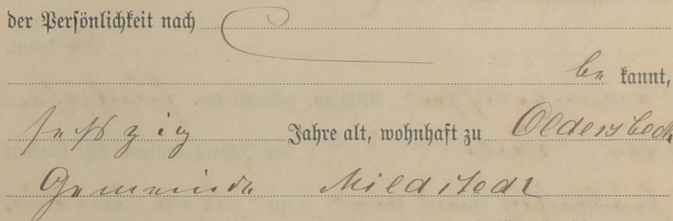 der Persönlichkeit nach
be kannt,
sechzig Jahre alt, wohnhaft zu Oldersbek
Gemeinde Mildstedt